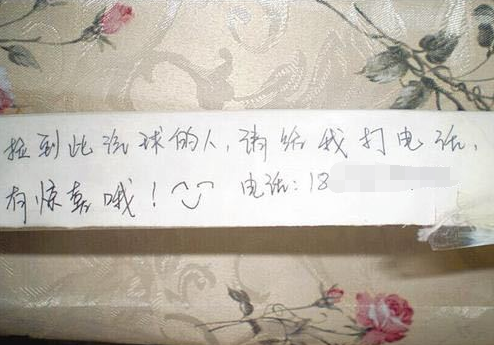 捡到此汽球的人,请给我打电话,
有惊喜哦! 电话:18